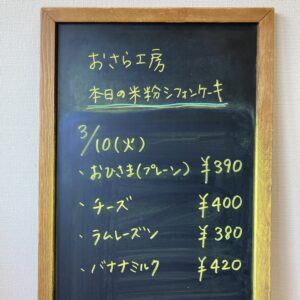 おさら工房
本日の米粉シフォンケーキ
3/10(火)
・おひさま(プレーン) ¥390
・チーズ ¥400
・ラムレーズン ¥380
・バナナミルク ¥420